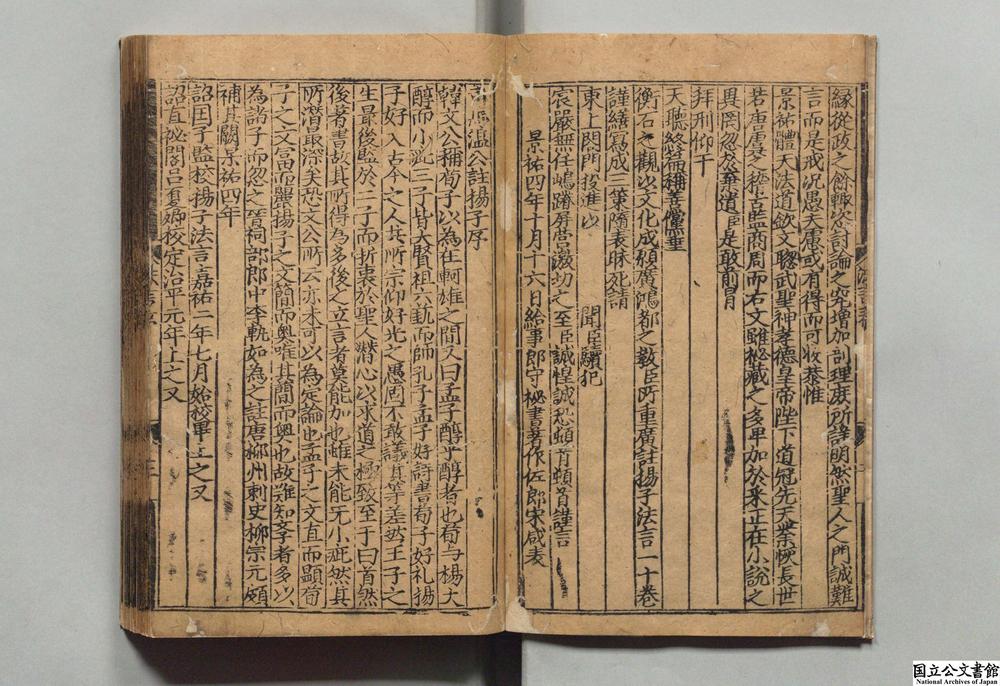 緣從政之餘輒欲討論之究增加剖理庶所辯明然聖人之門誠難
言而是戒況愚夫之慮或有得而可收恭惟
景祐體天法道欽文聦武聖神孝德皇帝陛下道冠先天業恢長世
若唐虞之稽古監商周而右文雖秘藏之多早加於采正在小說之
異罔忽於棄遺臣是敢前冒
拜刑仰干
天聽終篇稱善儻垂
衡石之觀以文化成願廣鴻都之教臣所重廣註揚子法言一十卷
謹繕寫成二策隨表昧死詣
東上閤門投進以 聞臣驕犯
宸嚴無任
景祐四年十月十六日給事郎守祕書著作佐郎宋咸表
司馬溫公註揚子序
韓文公稱荀子以為在軻雄之間又曰孟子醇乎醇者也荀与楊大
醇而小疵三子皆大賢祖六藝而師孔子孟子好詩書荀子好礼揚
子好易古今之人共所宗仰好光之愚固不敢議其等差然王子之
生最後監於二子而折衷於聖人潛心以求道之極致至于白首然
後著書故其所得為多後之立言者莫能加也雖未能无小疵然其
所潛最深矣恐文公所云亦未可以為定論也孟子之文直而顯荀
子之文富而麗揚子之文簡而奧唯其簡而奧也故難知斈者多以
為諸子而忽之晉祠部郎中李軌始為之註唐柳州刺史柳宗元頗
補其闕景祐四年
詔囯子監校揚子法言嘉祐二年七月始校畢上之又
詔直祕閣呂夏卿校定治平元年上之又
国立公文書館
National Archives of Japan